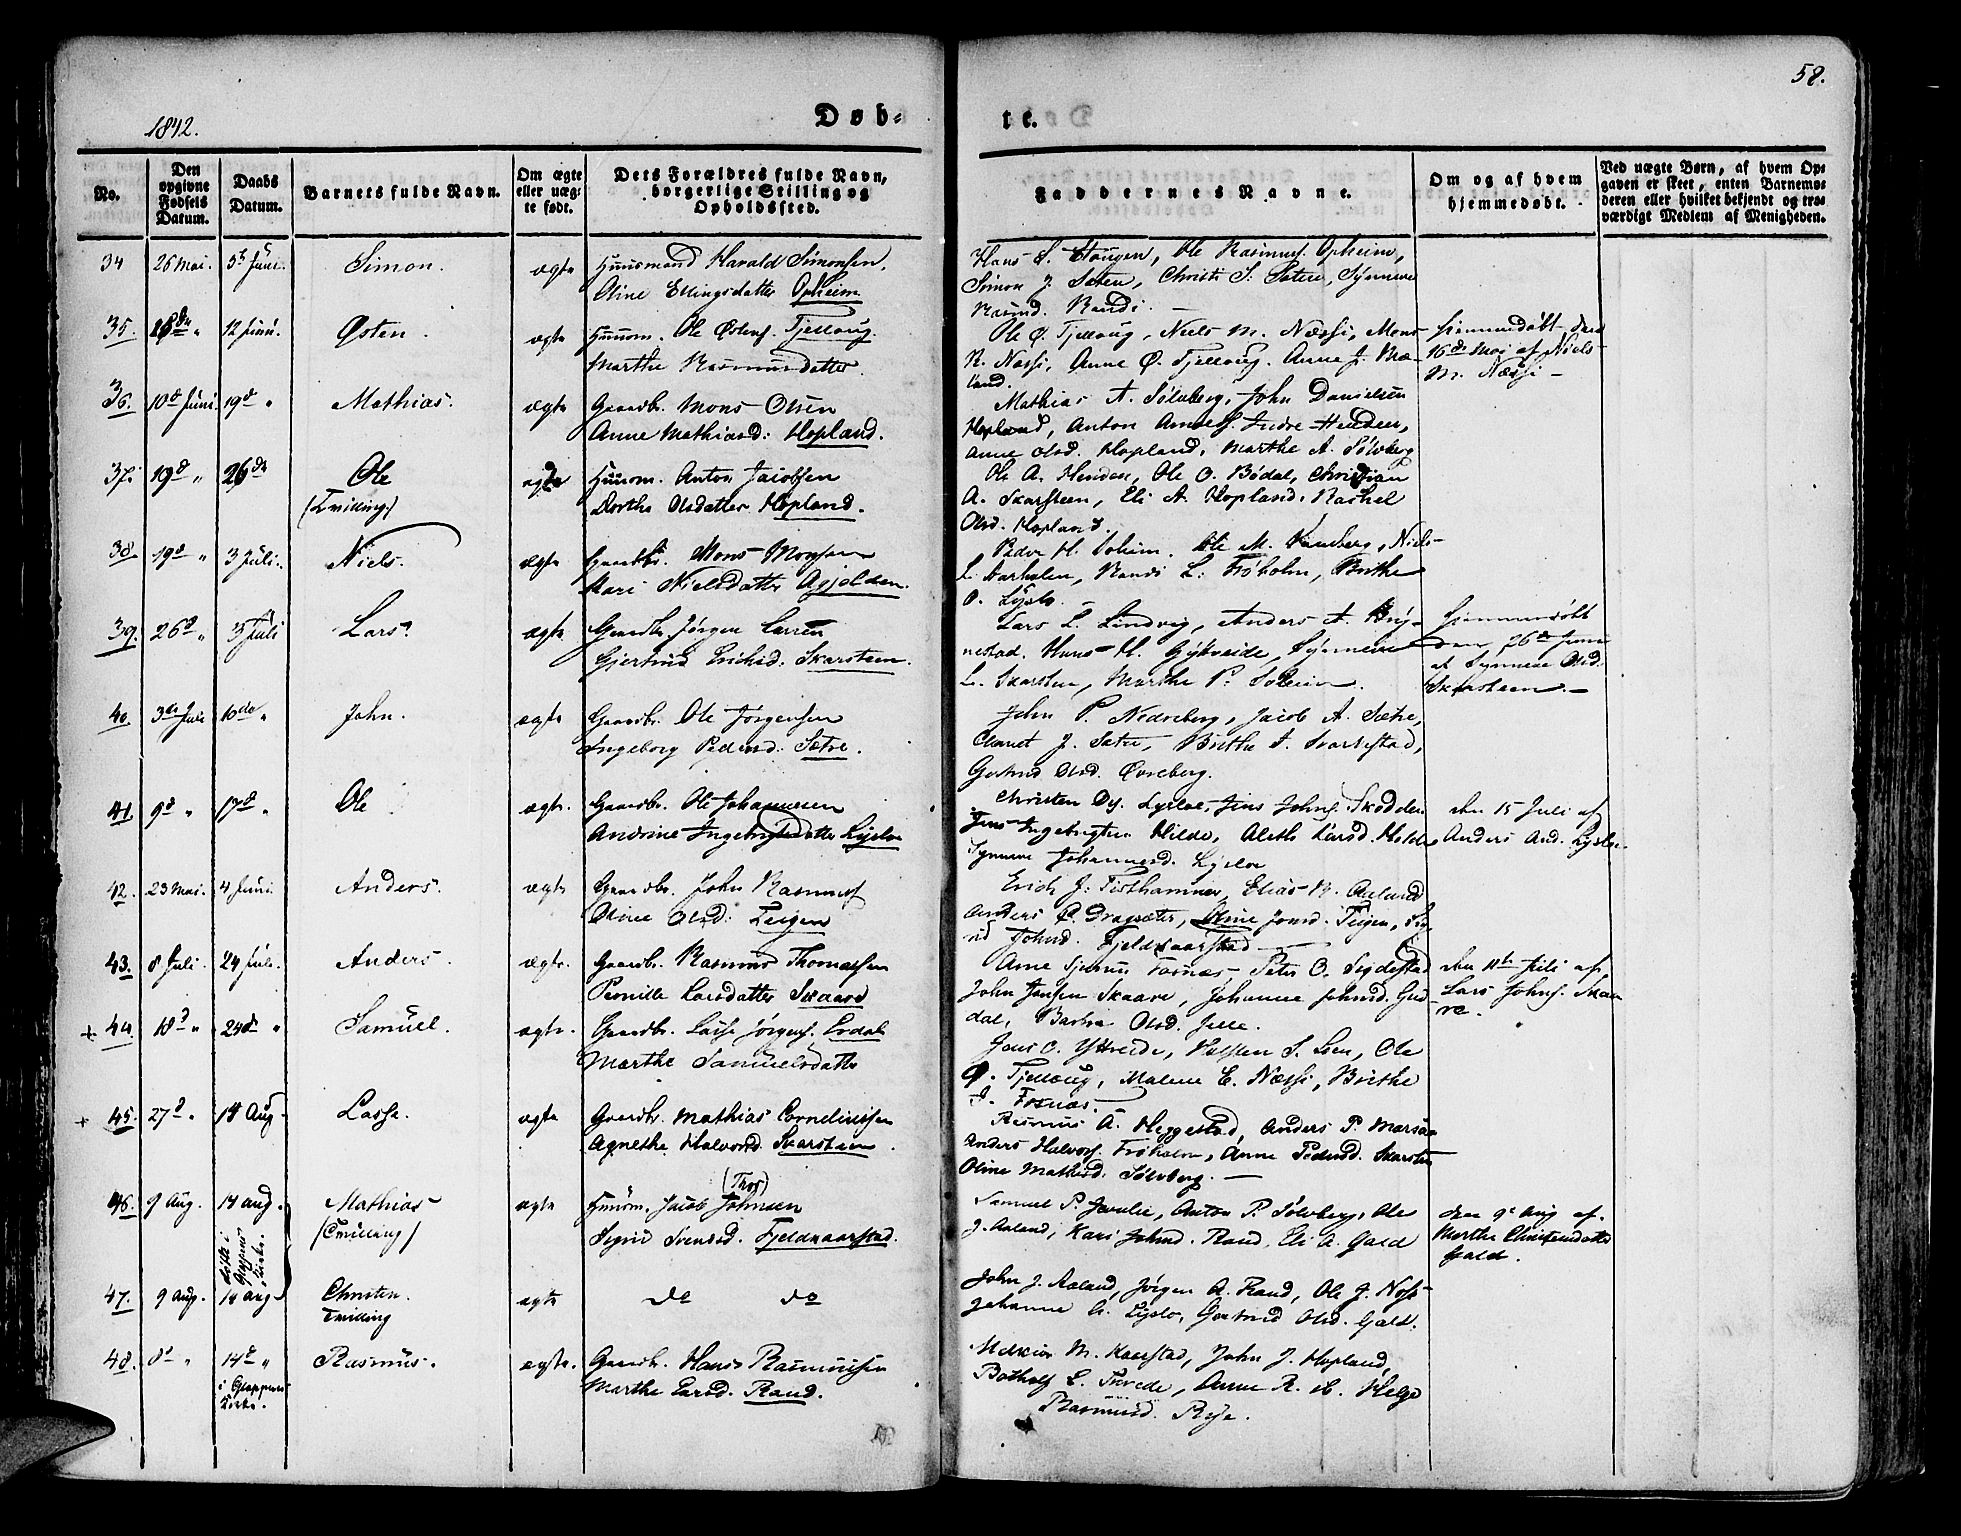 58.
1842.
Døb-
te.
No.
Den opgivne Fødsels Datum.
Daabs Datum.
Barnets fulde Navn.
Om ægte eller uæg-te født.
Dets Forældres fulde Navn, borgerlige Stilling og Opholdssted.
Faddernes Navne.
Om og af hvem hjemmedøbt.
Ved uægte Børn, af hvem Op-gaven er skeet, enten Barnemo-deren eller hvilket bekjendt og tro-værdigt Medlem af Menigheden.
34 26 Mai. 5te Juni. Simon. ægte Huusmand Harald Simonsen,
Oline Ellingsdatter Opheim
Ole Rasmuss. Opheim,
Simon J. Sæten, Christi S. Sæten, Synneve
Rasmd. Randi.
35. 12 Juni. Østen. ægte Huusm. Ole Østens. Tjellaug
Marthe Rasmusdatter.
Ole Ø. Tjellaug, Niels M. Næssi, Mons
R. Næssi, Anne Ø. Tjellaug. Anne J. Mæ-
land.
hjemmedøbt den
16de Mai af Niels
M. Næssi
36. 10d Juni. 19d " Mathias. ægte Gaardbr. Mons Olsen
Anne Mathiasd: Hopland.
Mathias A. Sølvberg, John Danielsen
Hopland, Anton Anders. Indre Henden,
Anne Olsd. Hopland, Marthe A. Sølvberg
37. 19d " 26de Ole ægte Huusm. Anton Jacobsen
(Tvilling) Dorthe Olsdatter Hopland.
Ole A. Henden, Ole O. Bødal, Christian
A. Skarsteen, Eli A. Hopland, Rachel
Olsd. Hopland.
38. 19d " 3 Juli. Niels. ægte Gaardbr. Mons Monsen
Mari Nielsdatter
Randi L. Frøholm, Brithe
O. Lyslo.
39. 26d " 3 Juli Lars. ægte Gaardbr. Jørgen Larsen
Gjertrud Erichsd. Skarsteen.
Lars L. Lindvig, Anders A. Bry-
nestad. Hans H. Gytveide, Synneve
L. Skarsteen, Marthe P. Soleim.
hjemmedøbt
den 26de Juni
af Synneve Olsd.
Skarsteen.
40 3die Juli 10de " John. ægte Gaardbr. Ole Jørgensen
Ingeborg Pedersd. Sætre.
John P. Nedreberg, Jacob A. Sætre,
J. Sætre, Brithe
Gertrud Olsd. Øvreberg.
41. 9d " 17d " Ole ægte. Gaardbr. Ole Johannesen
Andrine Ingebrigtsdatter Lyslo
Christen Lysloe, Jens Johns. Skodden
Jens Ingebrigtsen Hilde, Aleth Larsd. Holde,
Synneve Johannesd. Lysloe
den 15 Juli af
Anders And. Lyslo.
42. 23 Mai. 4 Juni. Anders. ægte Gaardbr. John Rasmuss
Oline Olsd: Teigen
Erich J. Tisthammer, Elias R. Aaland
Anders P. Dragsæter, Oline Jonsd. Teigen, Sig-
rid Johnsd. Fjeldkaarstad
43. 8 Juli. 24 Juli. Anders. ægte. Gaardbr. Rasmus Thomassen
Pernille Larsdatter Skaare
Arne Fosnæs, Peter O. Sigdestad
John Jensen Skaare, Johanne Johnsd. Gud-
dal, Barbra Olsd.
den 11te Juli af
Lars Johns. Skaa-
re.
+ 44. 18d " 24d " Samuel. ægte. Gaardbr. Lasse Jørgens. Erdal
Marthe Samuelsdatter
Jens O. Yttreide, Halsten S. Loen, Ole
Ø. Tjellaug, Malene E. Næssi, Brithe
J. Fosnæs.
+ 45. 27d " 14 Aug. Lasse. ægte Gaardbr. Mathias Corneliussen
Agnethe Halvorsd. Skarsteen.
Rasmus A. Heggestad, Anders P.
Anders Halvors. Frøholm, Anne Pedersd. Skarsten
Oline Mathisd. Sølvberg.
46. 9 Aug. 14 Aug. Mathias ægte Huusm. Jacob Johnsen
(Thor)
(Tvilling) Sigrid Svensd. Fjeldkaarstad.
døbt i
Gloppens
Kirke.
Samuel P. Anton P. Sølvberg, Ole
J. Aaland, Kari Johnsd. Rand, Eli A. Gald
den 9de Aug af
Marthe Christensdatter
Gald.
47. 9 Aug. 14 Aug Christen. ægte do do
Tvilling
John J. Aaland, Jørgen A. Rand, Ole J. Nos
Johanne A. Lyslo, Gertrud Olsd. Gald.
48. 8d " 14d " Rasmus. ægte. Gaardbr. Hans Rasmussen
i Gloppens
Kirke.
Marthe Larsd. Rand.
M. Kaarstad, John J. Hopland,
Botholf L. Anne R.
Rasmusd. Rye.